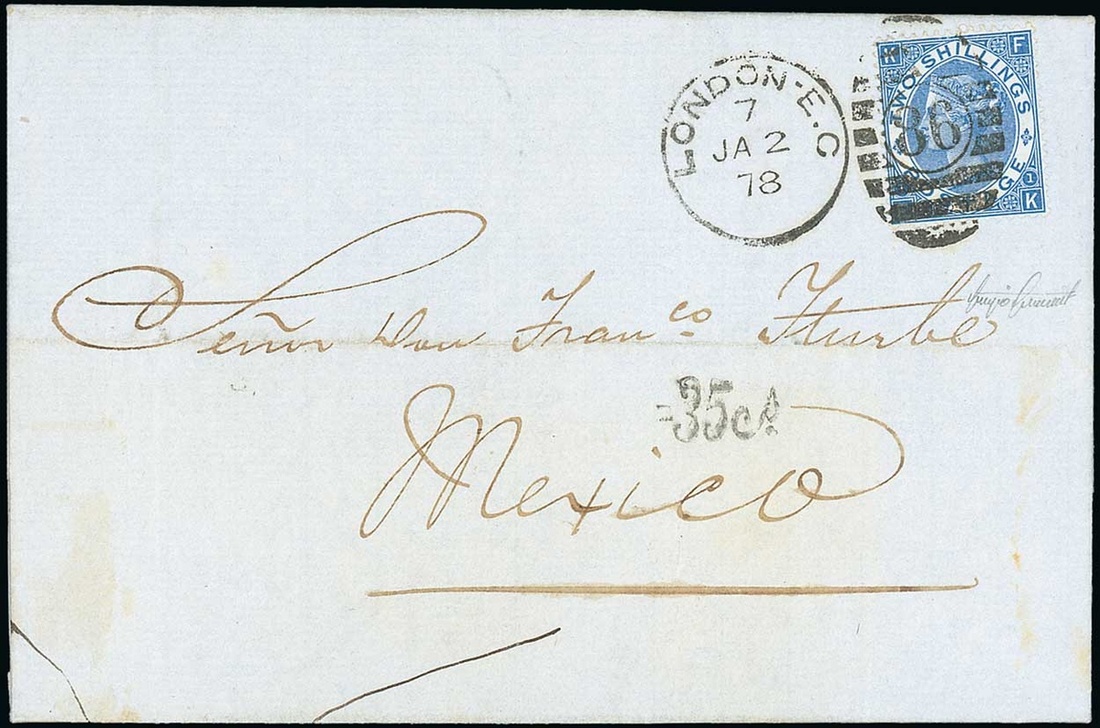 LONDON-E.C
7
JA 2
78
K F
TWO SHILLINGS
86
POSTAGE
1 K
Señor Don Fran.co Iturbe
35cs
Mexico